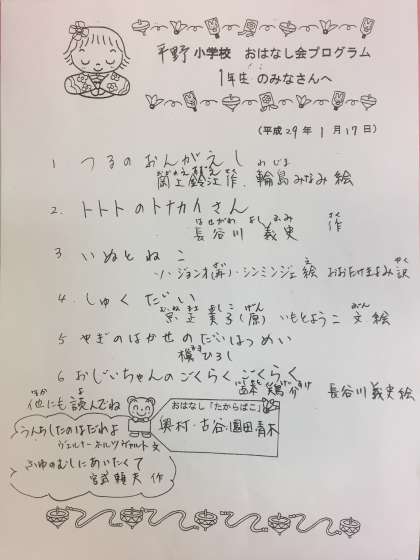 平野小学校 おはなし会プログラム
1年生 のみなさんへ
(平成29年 1月17日)
1 つるのおんがえし
岡上鈴江 作 輪島みなみ 絵
2. トトトのトナカイさん
長谷川 義史 作
3 いぬとねこ
ソ・ジョンオ(再)・シンミンジェ 絵 おおたけきよみ 訳
4. しゅくだい
宗正美子(原) いもとようこ 文 絵
5 やぎのはかせのだいはつめい
槇ひろし
6 おじいちゃんのごくらくごくらく
長谷川義史 絵
他にも読んでね
うんちしたのはだれよ
ヴェルナーホルツヴァルト 文
ふゆのむしにあいたくて
作
おはなし「たからばこ」
奥村・古谷・園田青木